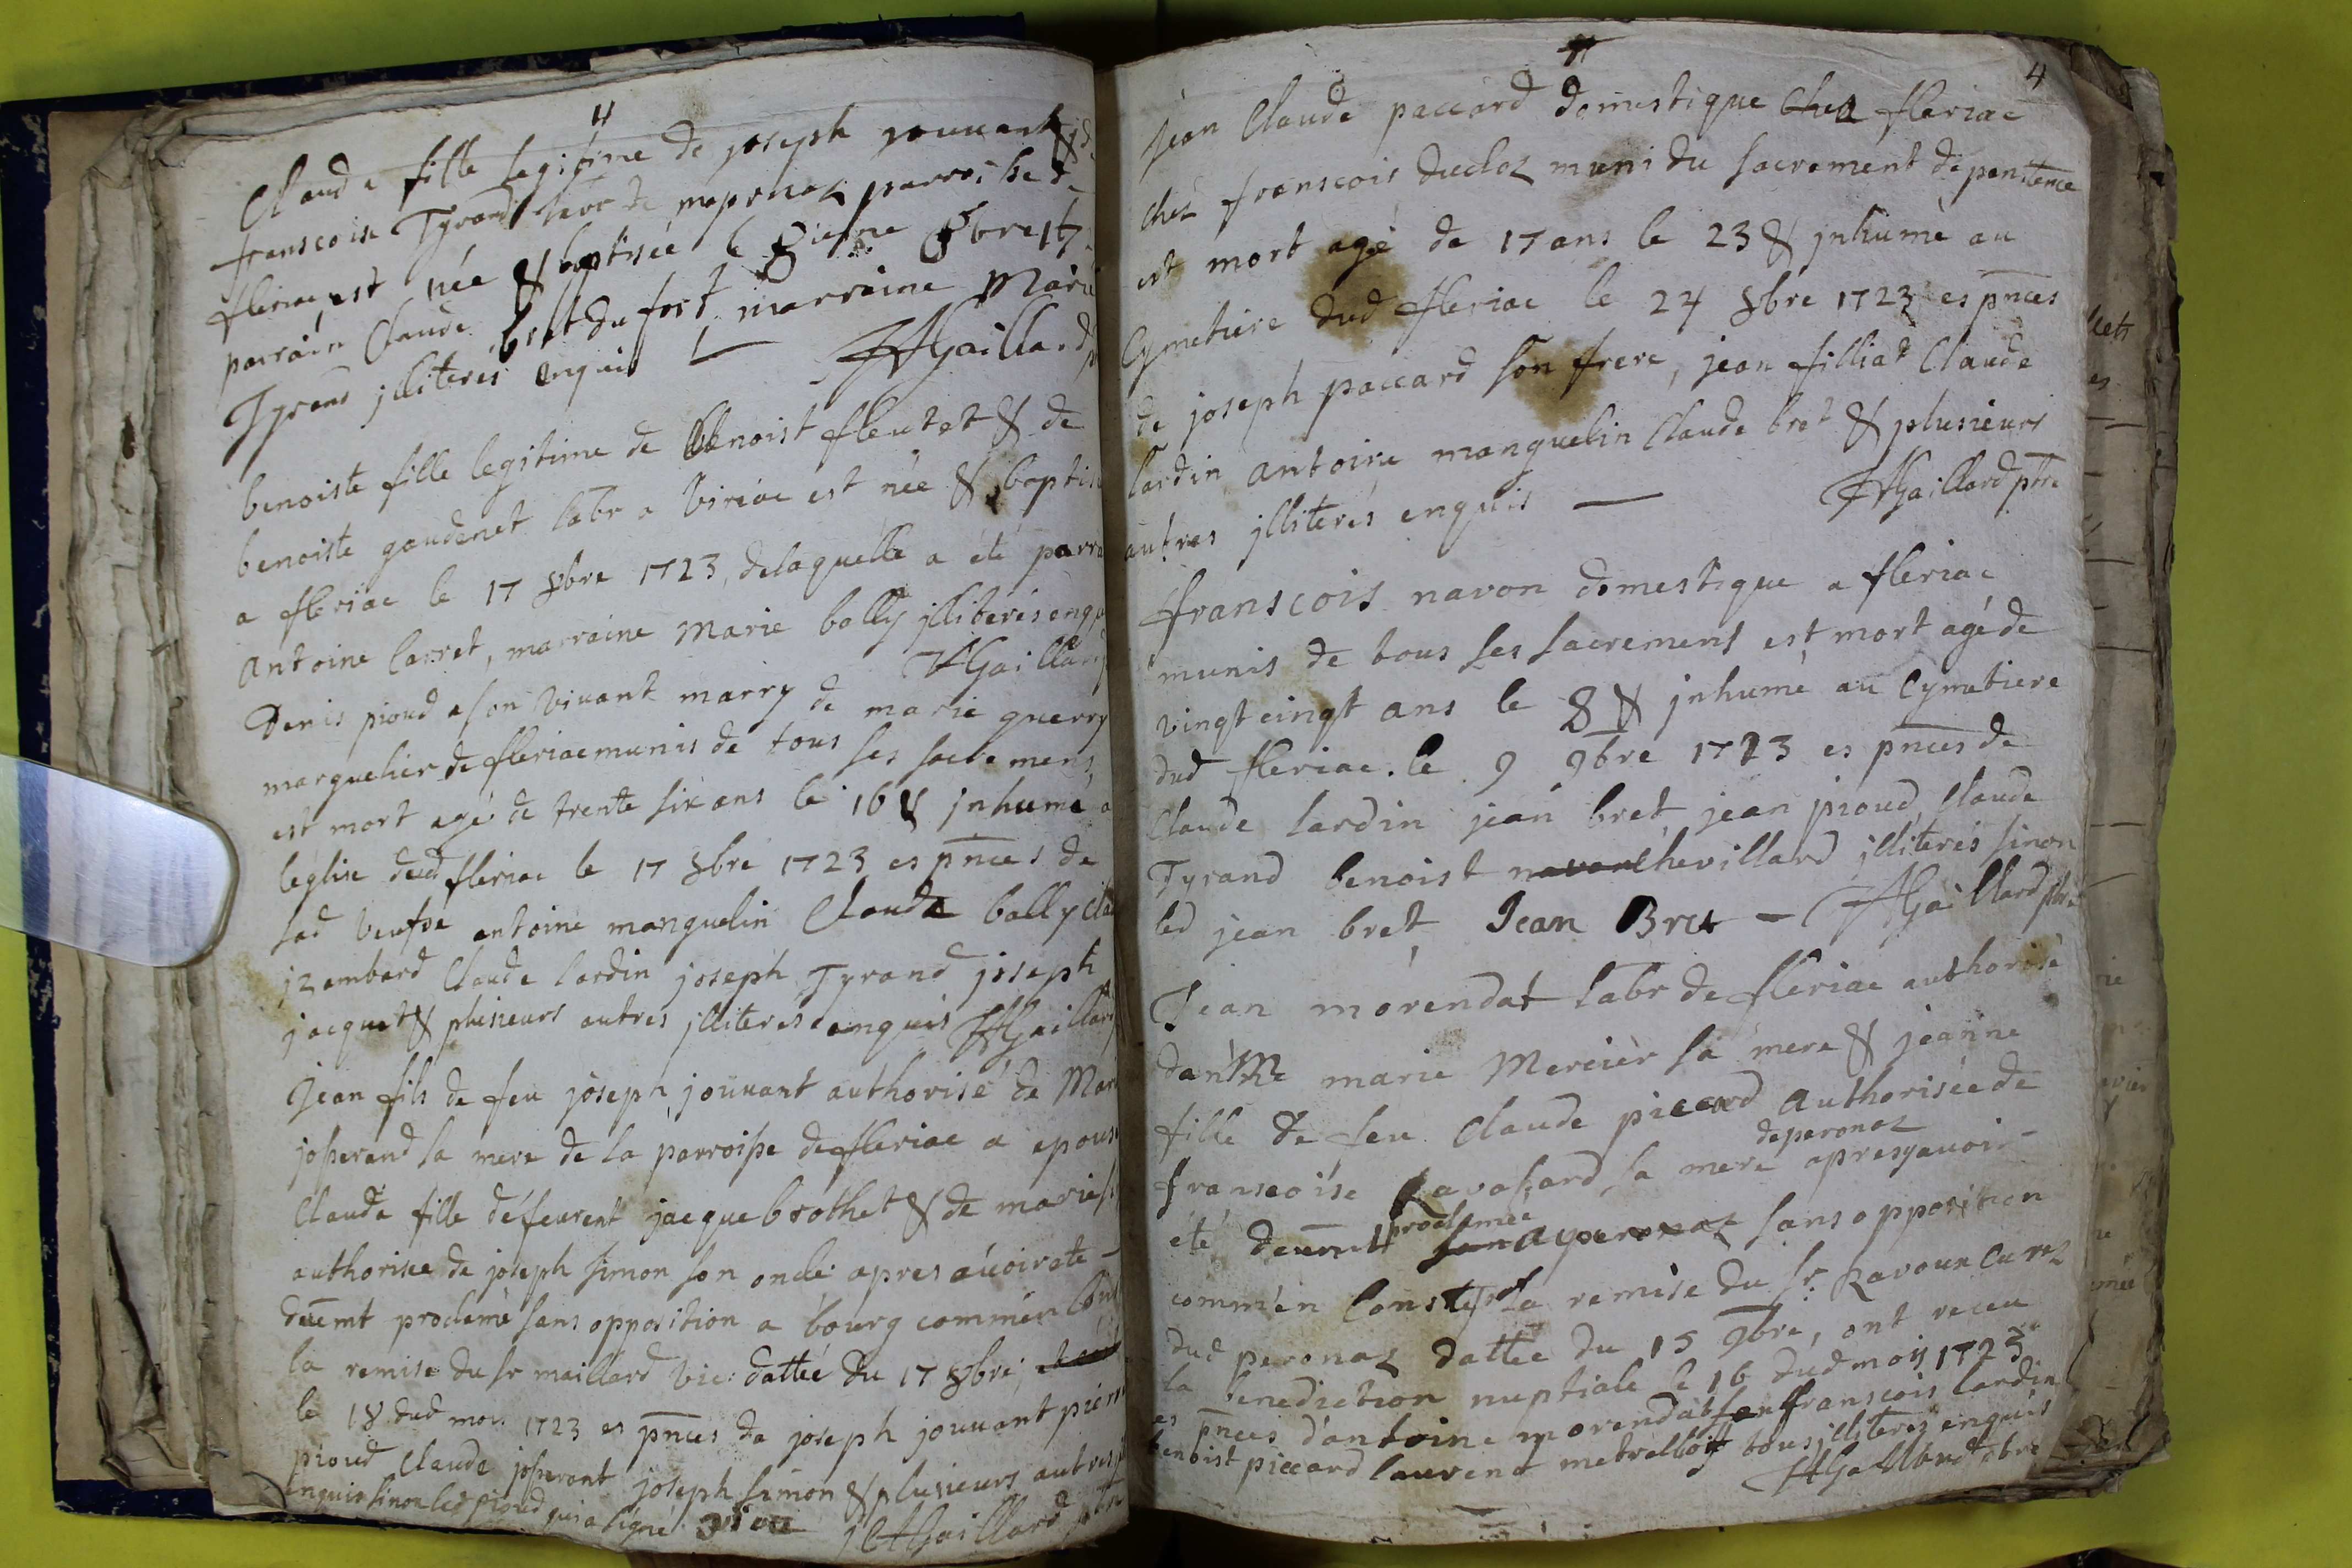 4
Claude fille legitime de joseph jouuant & de
franscoise Tyrand labr de meprnaz parroisse de
fleriac, est née & baptisée le 8ieme 8bre 17
parrain Claude bret du fort marraine Marie
Tyrand jlliterés enquis — JAGaillard p
benoiste fille legitime de benoist fleutet & de
benoiste goudenet labr a Viriac est née & baptisé
a fleriac le 17 8bre 1723, delaquelle a été parra
Antoine Carret, marraine Marie bolly jlliterés enq
JAGaillard
Denis pioud a son Vivant marry de marie guerry
marguelier de fleriac munis de tous ses sacremens,
est mort agé de trente six ans le 16 & jnhumé a
leglise dud fleriac le 17 8bre 1723 es pnces de
sad veufve antoine manguelin Claude bolly cla
jzembard Claude lardin joseph Tyrand joseph
jacquet & plusieurs autres jlliterés enquis JAGaillard
Jean fils de feu joseph jouuant authorisé de Mar
josserand sa mere de la parroisse de fleriac a epousé
Claude fille defeurent jacque brothet & de marie
authorisee de joseph simon son oncle apres auoir ete
deuemt proclemé sans opposition a bourg comme en cons
la remise du sr maillard Vic: dattée du 17 8bre,
le 18 dud mois 1723 es pnces de joseph jouuant pierre
pioud Claude josserant joseph simon & plusieurs autres j
enquis sinon led pioud qui a signé piou JAGaillard ptre
4
Jean Claude paccard domestique a fleriac
chés franscois ducloz muni du sacrement de penitence
est mort agé de 17 ans le 23 & jnhumé au
Cymetiere dud fleriac le 24 8bre 1723 es pnces
de joseph paccard son frere, jean filliat Claude
lardin antoine manguelin Claude bret & plusieurs
autres jlliterés enquis — JAGaillard ptre
franscois navon domestique a fleriac
munis de tous ses sacremens est mort agé de
vingt cinqt ans le 8 & jnhumé au Cymetiere
dud fleriac le 9 9bre 1723 es pnces de
Claude lardin jean bret jean pioud, Claude
Tyrand benoist navon Chevillard jlliterés sinon
led jean bret Jean Bret — JAGaillard ptre
Jean morendat labr de fleriac authorisé
marie Mercier sa mere & jeanne
fille de feu Claude piccard Authorisée de
franscoise Ravassard sa mere deperonaz apres y auoir
été deuemt proclamée a peronaz sans opposition
comm'en Conste la remise du Sr. Ravoux curez
dud peronaz dattée du 15 9bre, ont receu
la benediction nuptiale le 16 dud mois 1723
es pnces d'antoine morendat franscois lardin
benoist piccard laurent tous jlliterés enquis
JAGaillard ptre